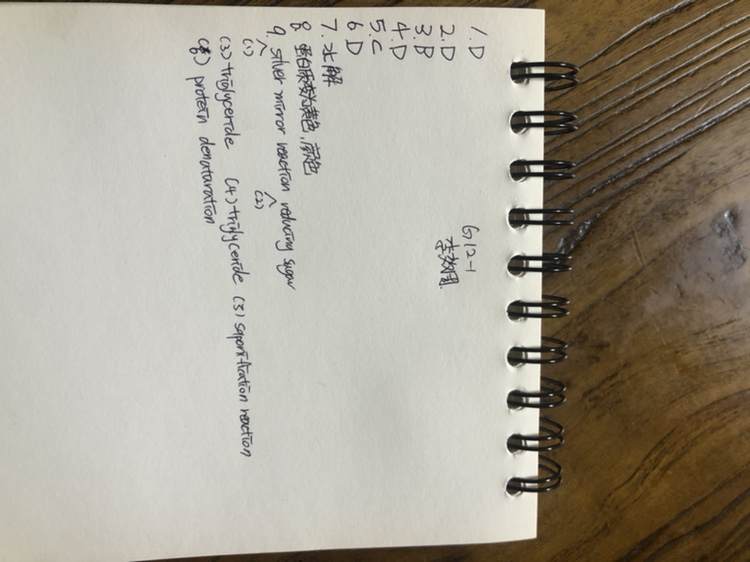 G12-1
1. D
2. D
3. B
4. D
5. C
6. D
7. 水解
8 蛋白质变为黄色,颜色
9. silver mirror reaction reducing sugar
(1) (2)
(3) triglyceride (4) triglyceride (3) saponification reaction
(6) protein denaturation